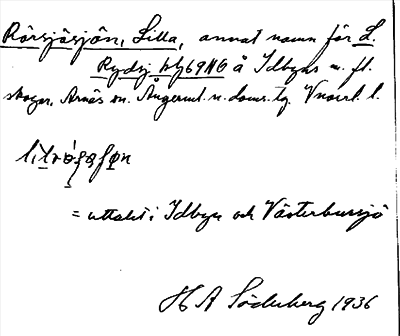 Rörsjösjön, Lilla, annat namn för L.
Rydsj å Idbyns m. fl.
skogar, Arnäs sn. Ångerml. n. doms. tg. Vnorrl. l.
= uttalet i Idbyn och Västerbursjö
H A Söderberg 1936